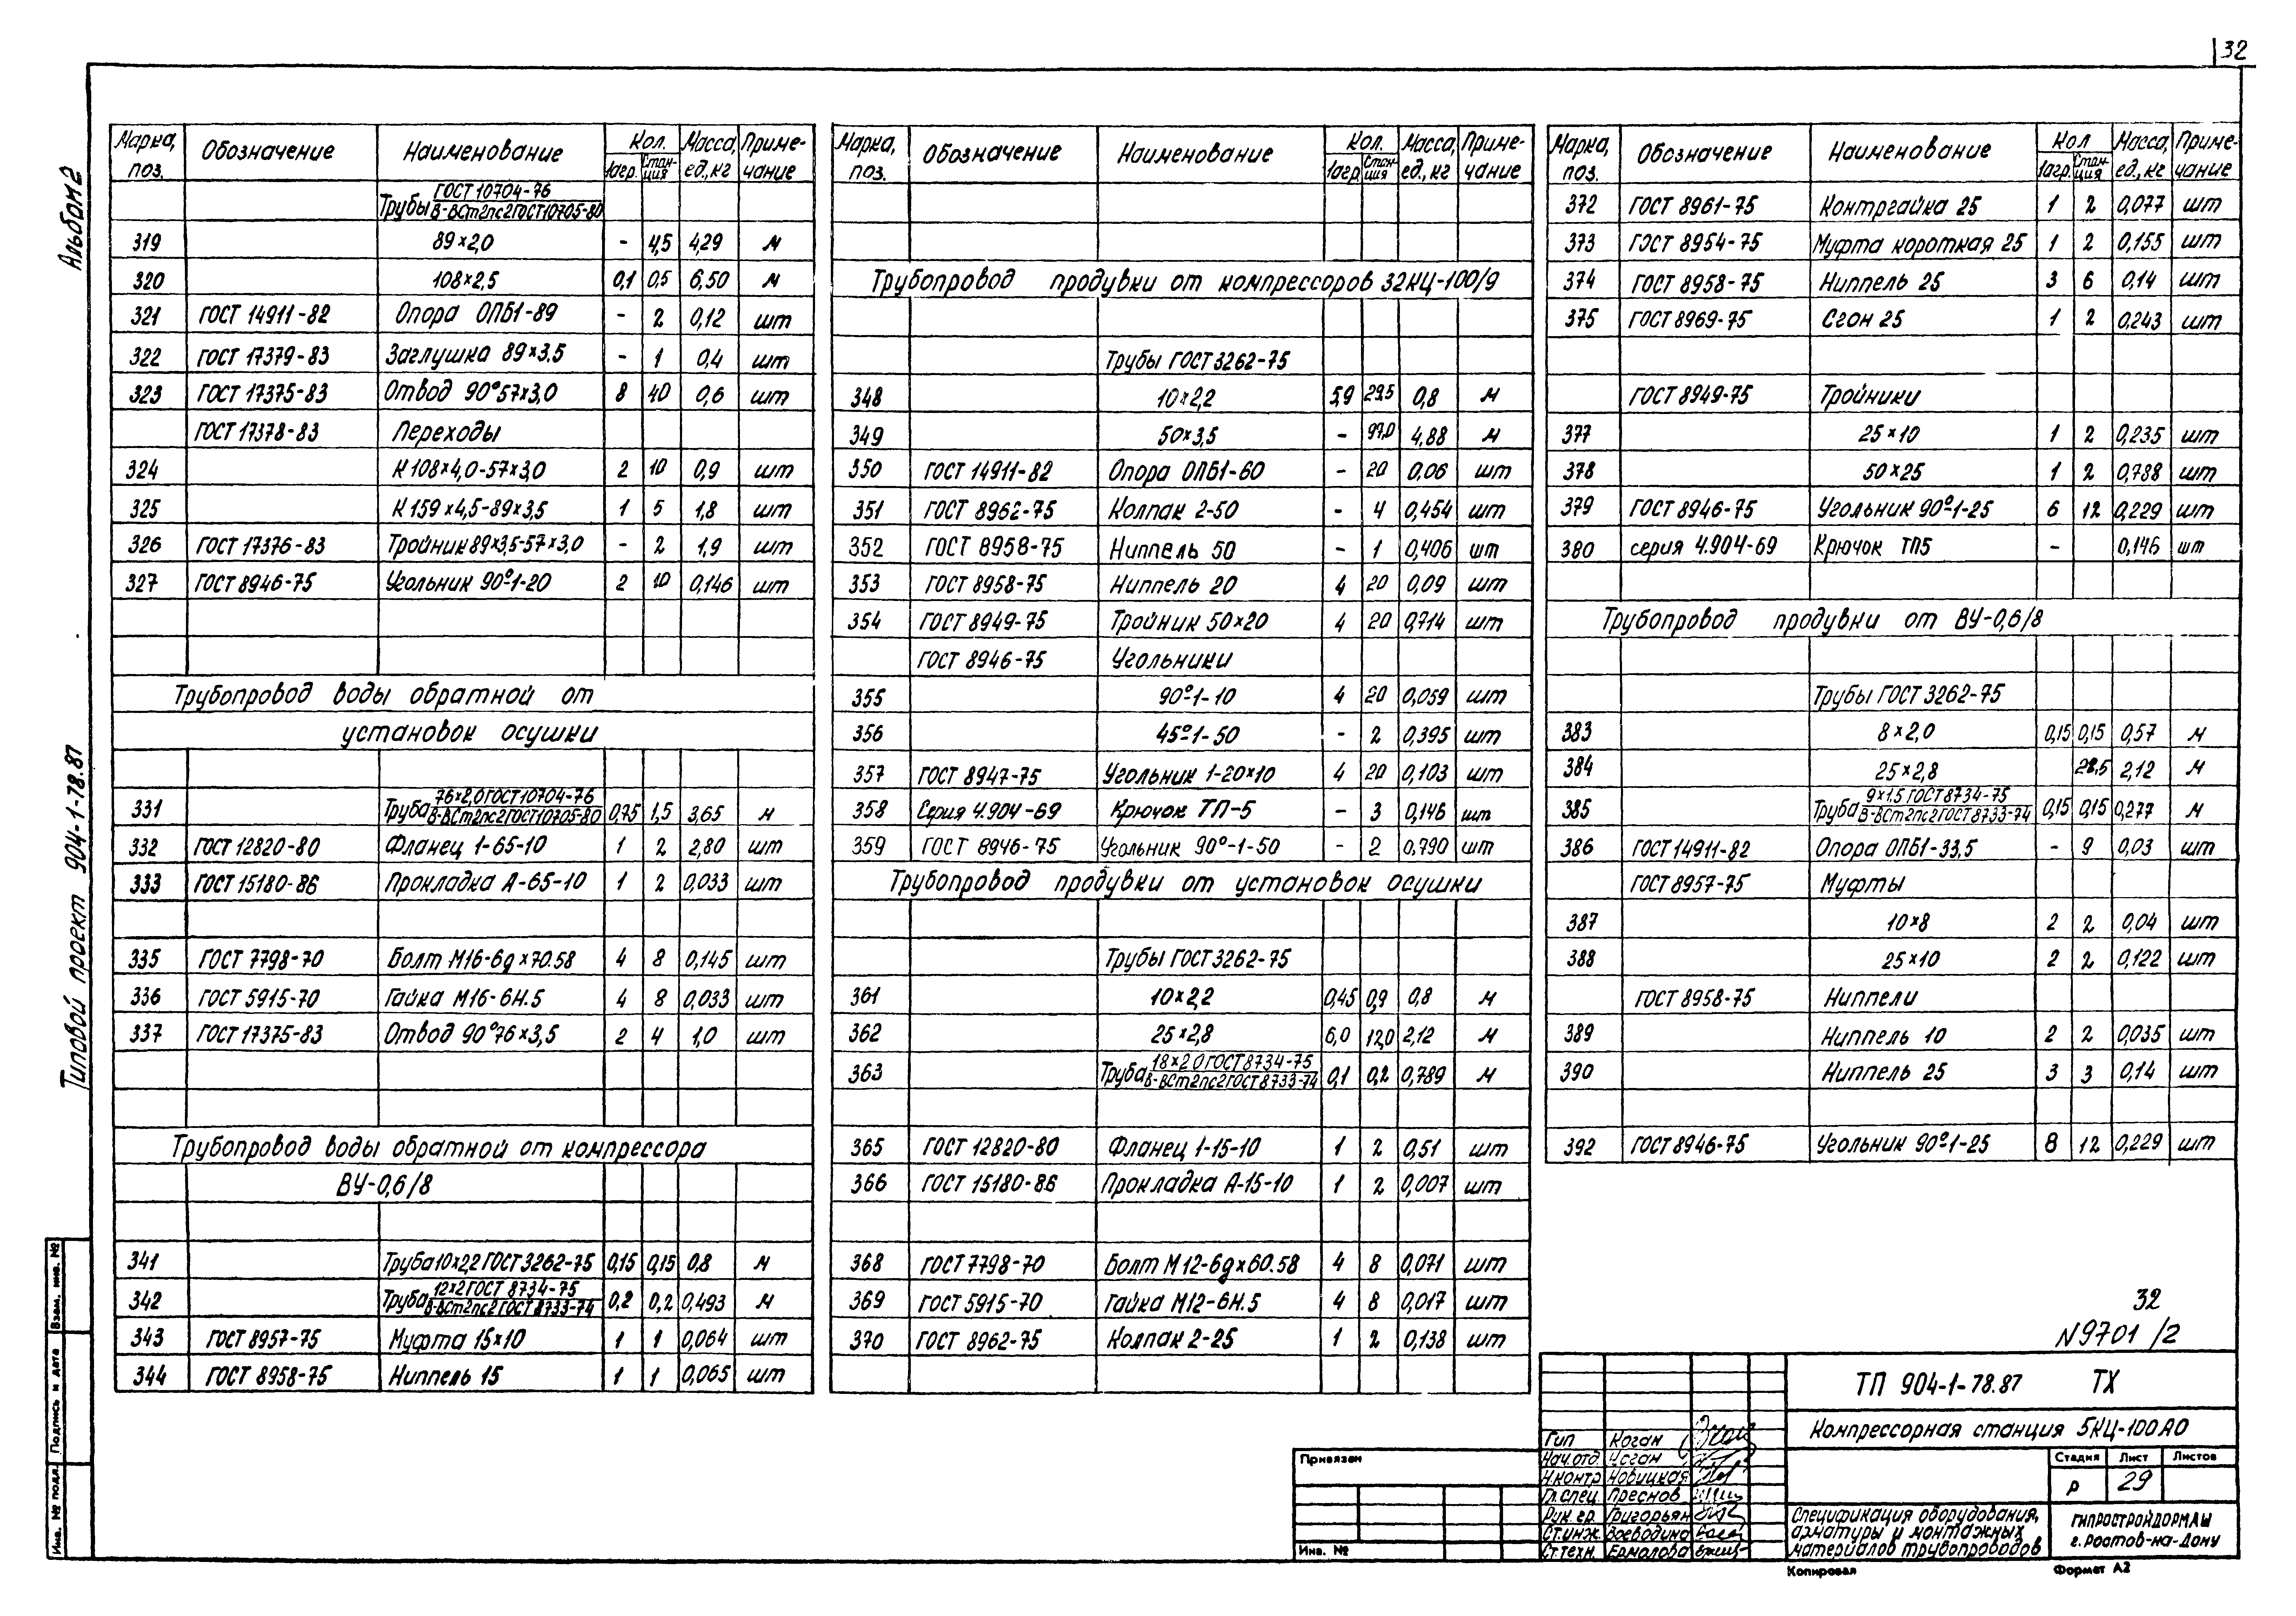 32
Альбом 2
Типовой проект 904-1-78.87
Марка, поз. Обозначение Наименование Кол. 1агр. Стан-ция Масса, ед., кг Приме-чание
Трубы ГОСТ 10704-76 / В-ВСт2пс2ГОСТ10705-80
319 89×2,0 - 4,5 4,29 м
320 108×2,5 0,1 0,5 6,50 м
321 ГОСТ 14911-82 Опора ОПБ1-89 - 2 0,12 шт
322 ГОСТ 17379-83 Заглушка 89×3.5 - 1 0,4 шт
323 ГОСТ 17375-83 Отвод 90°57×3,0 8 40 0,6 шт
ГОСТ 17378-83 Переходы
324 К 108×4,0-57×3,0 2 10 0,9 шт
325 К 159×4,5-89×3,5 1 5 1,8 шт
326 ГОСТ 17376-83 Тройник 89×3,5-57×3,0 - 2 1,9 шт
327 ГОСТ 8946-75 Угольник 90°-1-20 2 10 0,146 шт
Трубопровод воды обратной от
установок осушки
331 Труба 76×2,0 ГОСТ 10704-76 / В-ВСт2пс2ГОСТ10705-80 0,75 1,5 3,65 м
332 ГОСТ 12820-80 Фланец 1-65-10 1 2 2,80 шт
333 ГОСТ 15180-86 Прокладка А-65-10 1 2 0,033 шт
335 ГОСТ 7798-70 Болт М16-6g×70.58 4 8 0,145 шт
336 ГОСТ 5915-70 Гайка М16-6Н.5 4 8 0,033 шт
337 ГОСТ 17375-83 Отвод 90°76×3,5 2 4 1,0 шт
Трубопровод воды обратной от компрессора
ВУ-0,6/8
341 Труба 10×2,2 ГОСТ 3262-75 0,15 0,15 0,8 м
342 Труба 12×2 ГОСТ 8734-75 / В-ВСт2пс2 ГОСТ 8733-74 0,2 0,2 0,493 м
343 ГОСТ 8957-75 Муфта 15×10 1 1 0,064 шт
344 ГОСТ 8958-75 Ниппель 15 1 1 0,065 шт
Марка, поз. Обозначение Наименование Кол. 1агр Стан-ция Масса, ед., кг Приме-чание
Трубопровод продувки от компрессоров 32КЦ-100/9
Трубы ГОСТ 3262-75
348 10×2,2 5,9 29,5 0,8 м
349 50×3,5 - 97,0 4,88 м
350 ГОСТ 14911-82 Опора ОПБ1-60 - 20 0,06 шт
351 ГОСТ 8962-75 Колпак 2-50 - 4 0,454 шт
352 ГОСТ 8958-75 Ниппель 50 - 1 0,406 шт
353 ГОСТ 8958-75 Ниппель 20 4 20 0,09 шт
354 ГОСТ 8949-75 Тройник 50×20 4 20 0,714 шт
ГОСТ 8946-75 Угольники
355 90°-1-10 4 20 0,059 шт
356 45°-1-50 - 2 0,395 шт
357 ГОСТ 8947-75 Угольник 1-20×10 4 20 0,103 шт
358 Серия 4.904-69 Крючок ТП-5 - 3 0,146 шт
359 ГОСТ 8946-75 Угольник 90°-1-50 - 2 0,790 шт
Трубопровод продувки от установок осушки
Трубы ГОСТ 3262-75
361 10×2,2 0,45 0,9 0,8 м
362 25×2,8 6,0 12,0 2,12 м
363 Труба 18×2.0 ГОСТ 8734-75 / В-ВСт2пс2ГОСТ 8733-74 0,1 0,2 0,789 м
365 ГОСТ 12820-80 Фланец 1-15-10 1 2 0,51 шт
366 ГОСТ 15180-86 Прокладка А-15-10 1 2 0,007 шт
368 ГОСТ 7798-70 Болт М12-6g×60.58 4 8 0,071 шт
369 ГОСТ 5915-70 Гайка М12-6Н.5 4 8 0,017 шт
370 ГОСТ 8962-75 Колпак 2-25 1 2 0,138 шт
Марка, поз. Обозначение Наименование Кол 1агр. Стан-ция Масса, ед., кг Приме-чание
372 ГОСТ 8961-75 Контргайка 25 1 2 0,077 шт
373 ГОСТ 8954-75 Муфта короткая 25 1 2 0,155 шт
374 ГОСТ 8958-75 Ниппель 25 3 6 0,14 шт
375 ГОСТ 8969-75 Сгон 25 1 2 0,243 шт
ГОСТ 8949-75 Тройники
377 25×10 1 2 0,235 шт
378 50×25 1 2 0,788 шт
379 ГОСТ 8946-75 Угольник 90°-1-25 6 12 0,229 шт
380 серия 4.904-69 Крючок ТП5 - 0,146 шт
Трубопровод продувки от ВУ-0,6/8
Трубы ГОСТ 3262-75
383 8×2,0 0,15 0,15 0,57 м
384 25×2,8 28,5 2,12 м
385 Труба 9×1.5 ГОСТ 8734-75 / В-ВСт2пс2ГОСТ 8733-74 0,15 0,15 0,277 м
386 ГОСТ 14911-82 Опора ОПБ1-33,5 - 9 0,03 шт
ГОСТ 8957-75 Муфты
387 10×8 2 2 0,04 шт
388 25×10 2 2 0,122 шт
ГОСТ 8958-75 Ниппели
389 Ниппель 10 2 2 0,035 шт
390 Ниппель 25 3 3 0,14 шт
392 ГОСТ 8946-75 Угольник 90°-1-25 8 12 0,229 шт
32
N9701/2
ТП 904-1-78.87 ТХ
Компрессорная станция 5КЦ-100А0
Стадия Лист Листов
Р 29
Спецификация оборудования, арматуры и монтажных материалов трубопроводов
ГИПРОСТРОЙДОРМАШ
г. Ростов-на-Дону
Гип Коган
Нач.отд. Цоган
Н.контр Новицкая
Гл.спец. Преснов
Рук. гр. Григорьян
Ст.инж. Воеводина
Ст.техн. Ермолова
Привязан
Инв. №
Копировал Формат А2
Взам. инв. №
Подпись и дата
Инв. № подл.